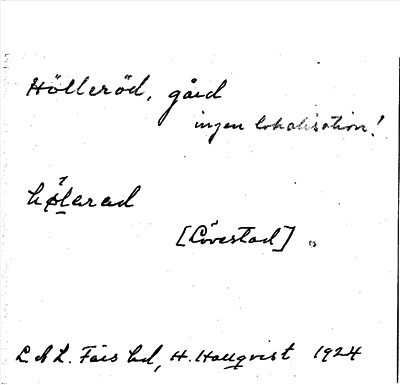 Hölleröd, gård
ingen lokalisation!
hø̂larad
[Lövestad]
L A L. Färs hd, H. Hallqvist 1924